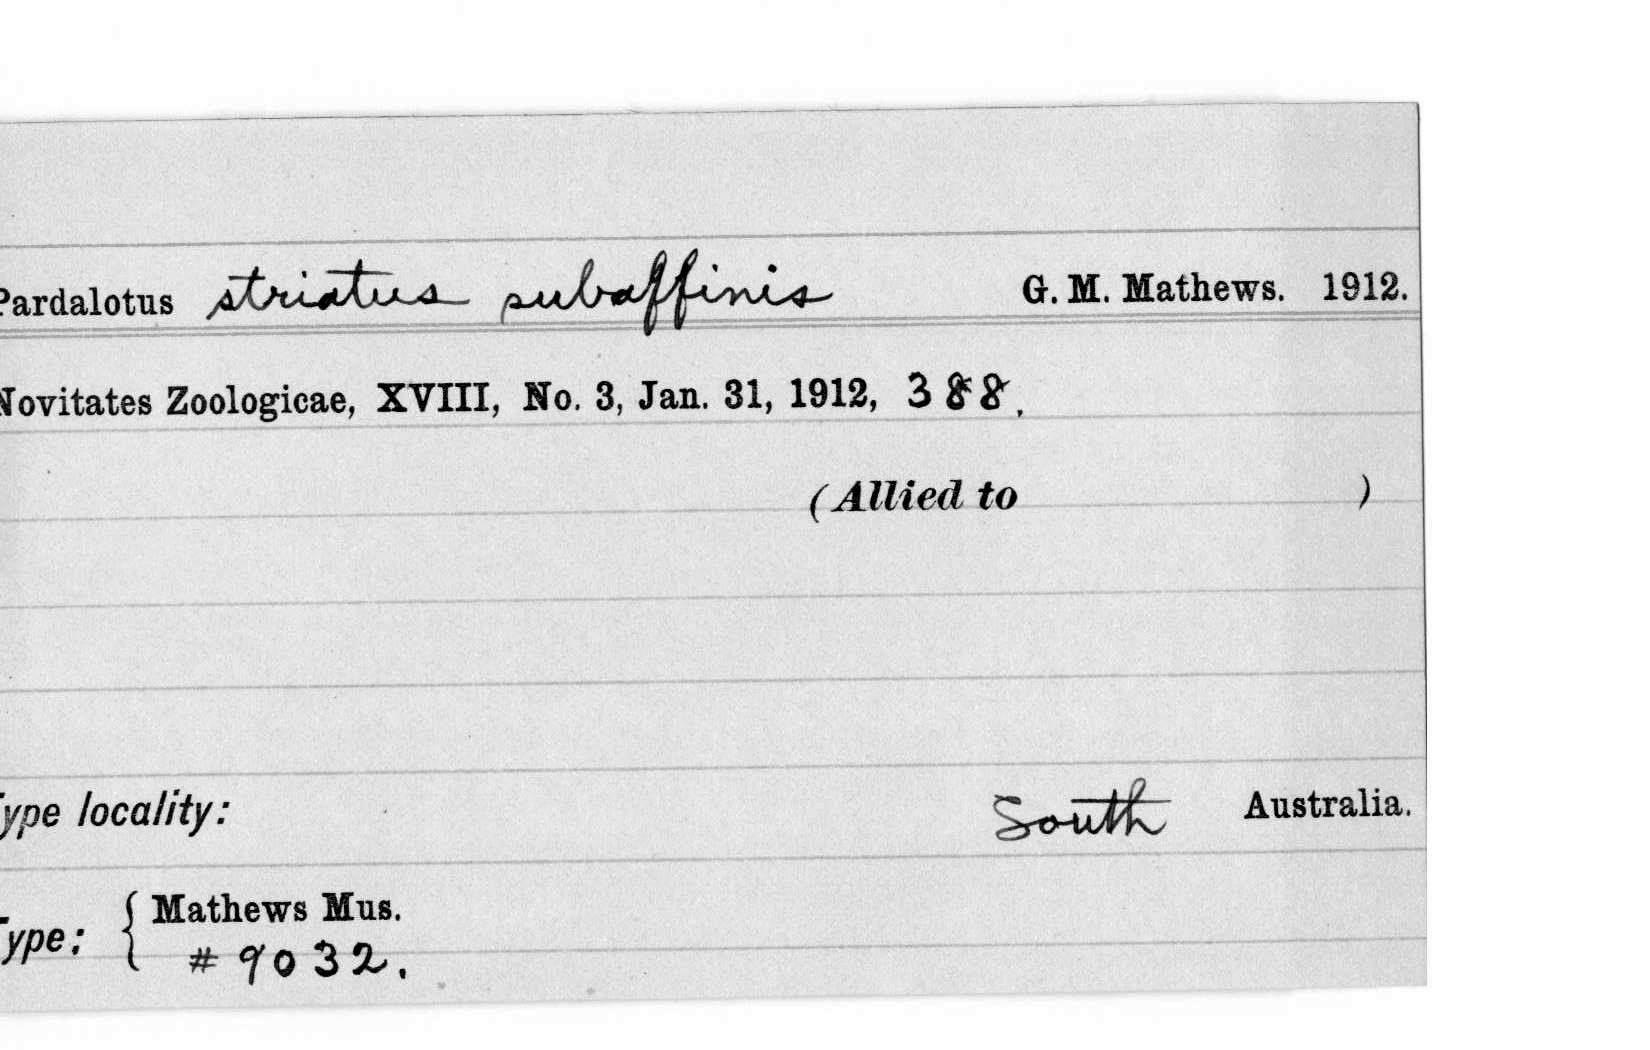 Pardalotus striatus subaffinis G. M. Mathews. 1912.
Novitates Zoologicae, XVIII, No. 3, Jan. 31, 1912, 388.
(Allied to )
Type locality: South Australia.
Type: { Mathews Mus.
# 9032.